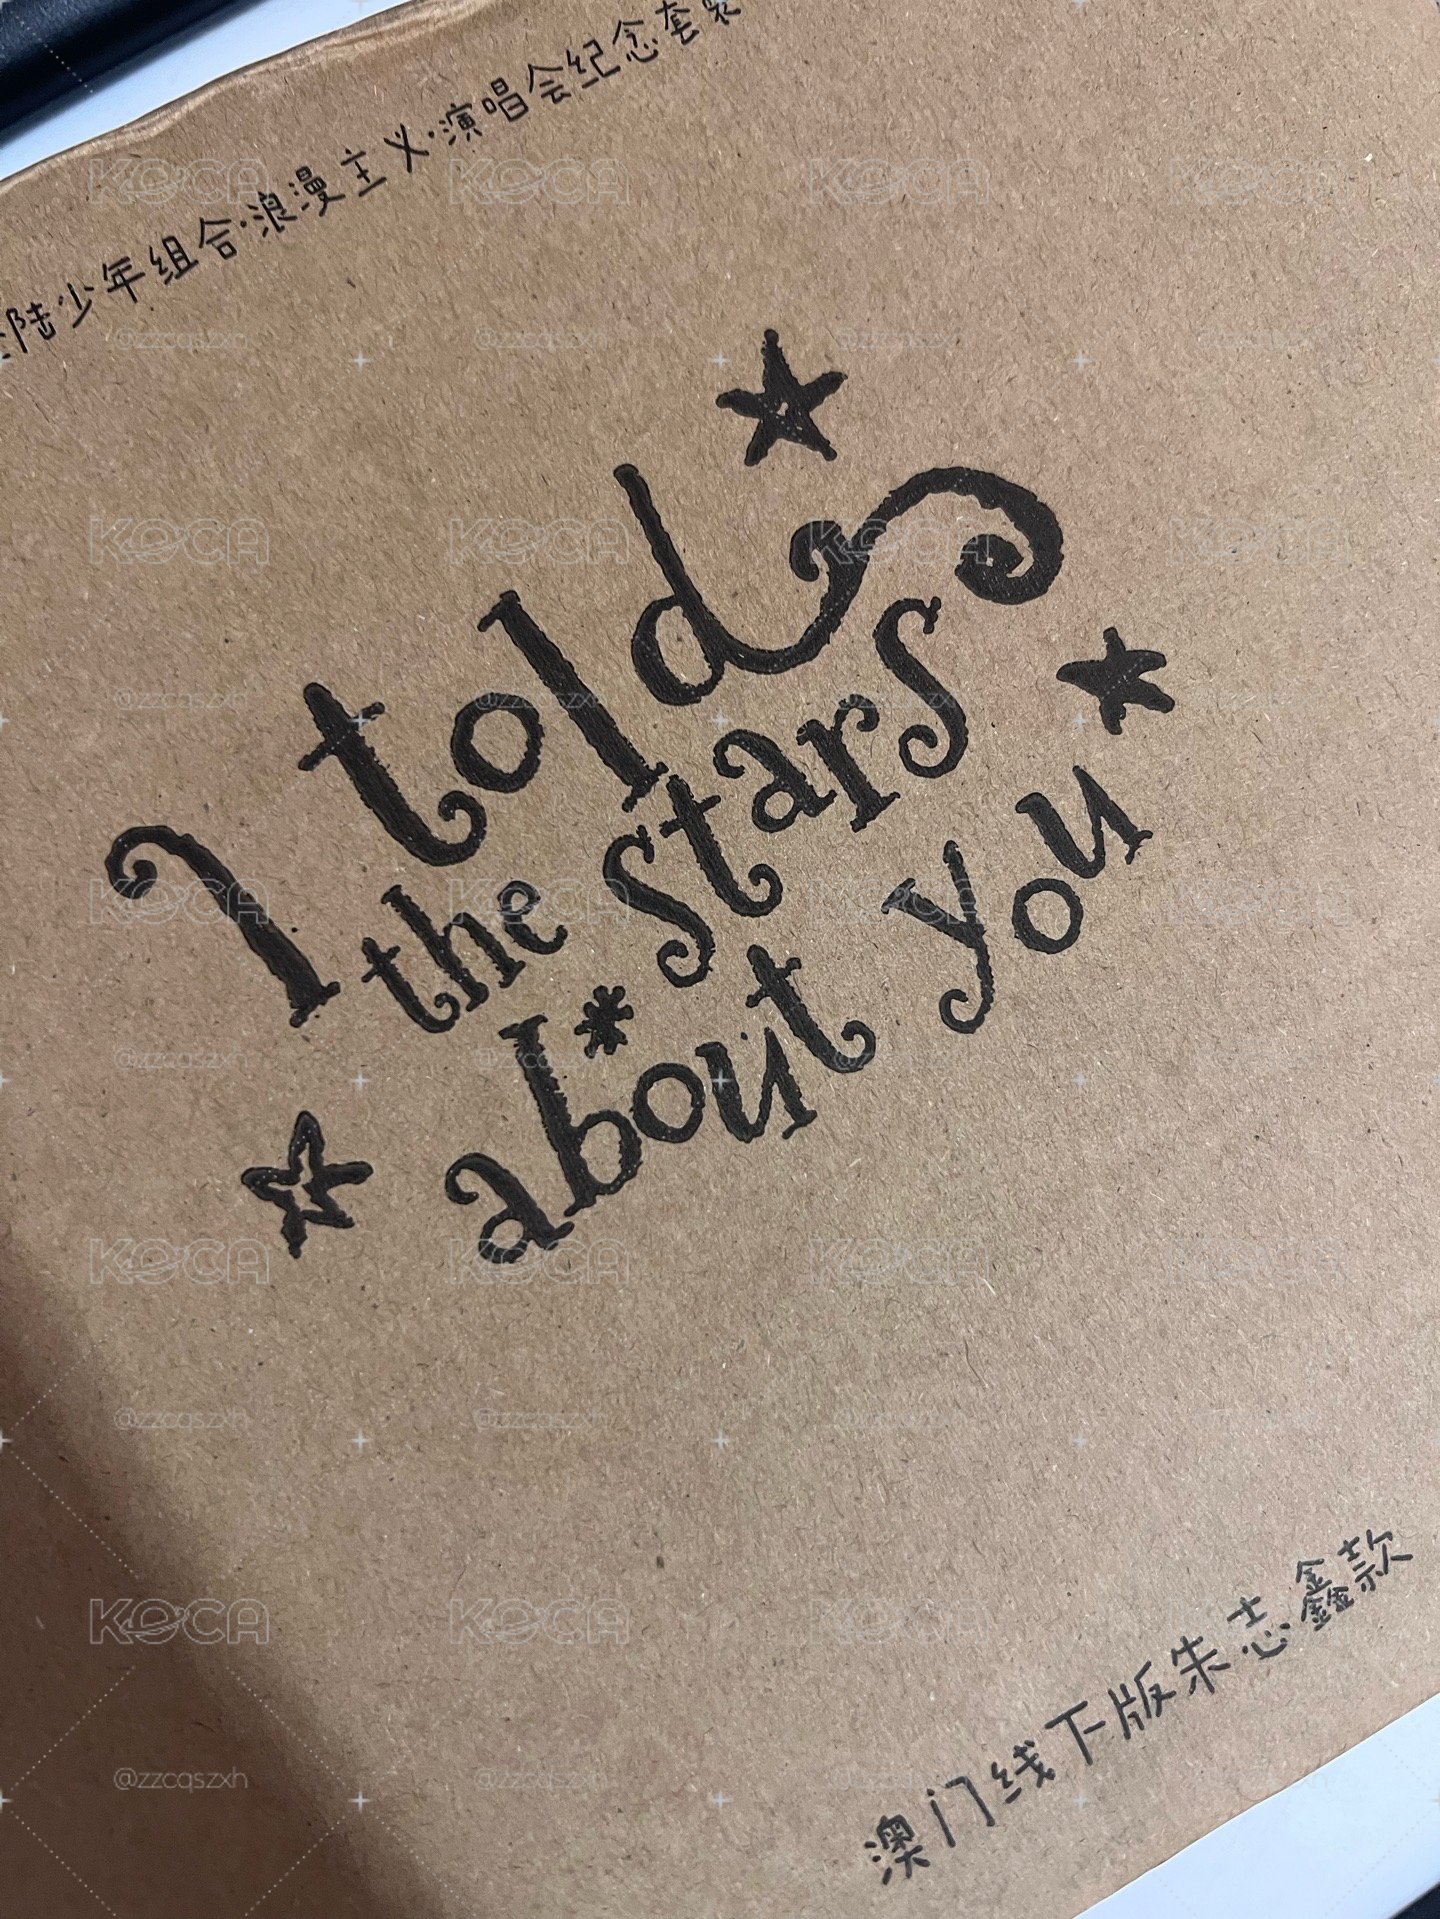 陆少年组合·浪漫主义·演唱会纪念套装
I told
the stars
about you
澳门线下版朱志鑫款
KOCA
@zzcqszxh